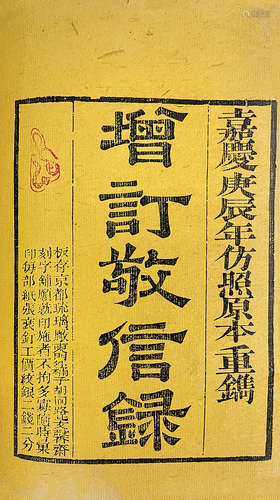 嘉慶庚辰年仿照原本重鐫
增訂敬信錄
板存京都琉璃廠
刻字鋪願就印施者不拘多寡隨時集
印每部紙張裝釘工價紋銀二錢二分